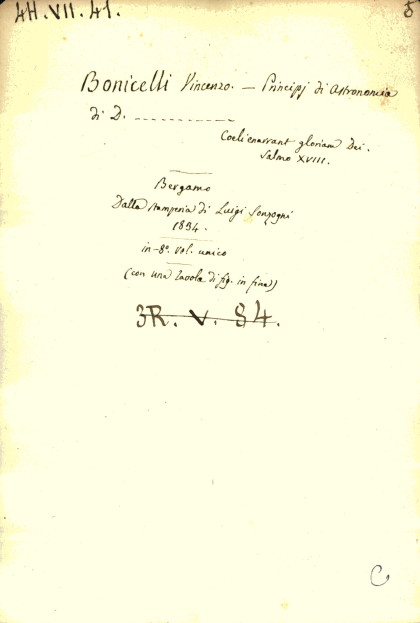 4H.VII.41.
5
Bonicelli Vincenzo. — Principj di Astronomia
di D. ------------
Coeli enarrant gloriam Dei.
Salmo XVIII.
Bergamo
Dalla stamperia di Luigi Sonzogni
1834.
in-8°. vol. unico
(con una tavola di fig. in fine)
3R. V. 84.
C